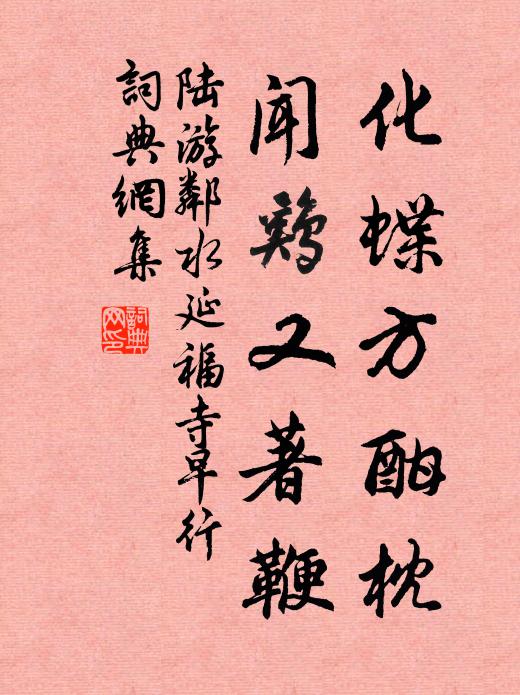 化蝶方酣枕
聞鷄又著鞭
陆游鄰水延福寺早行
詞典網集
詞典网印